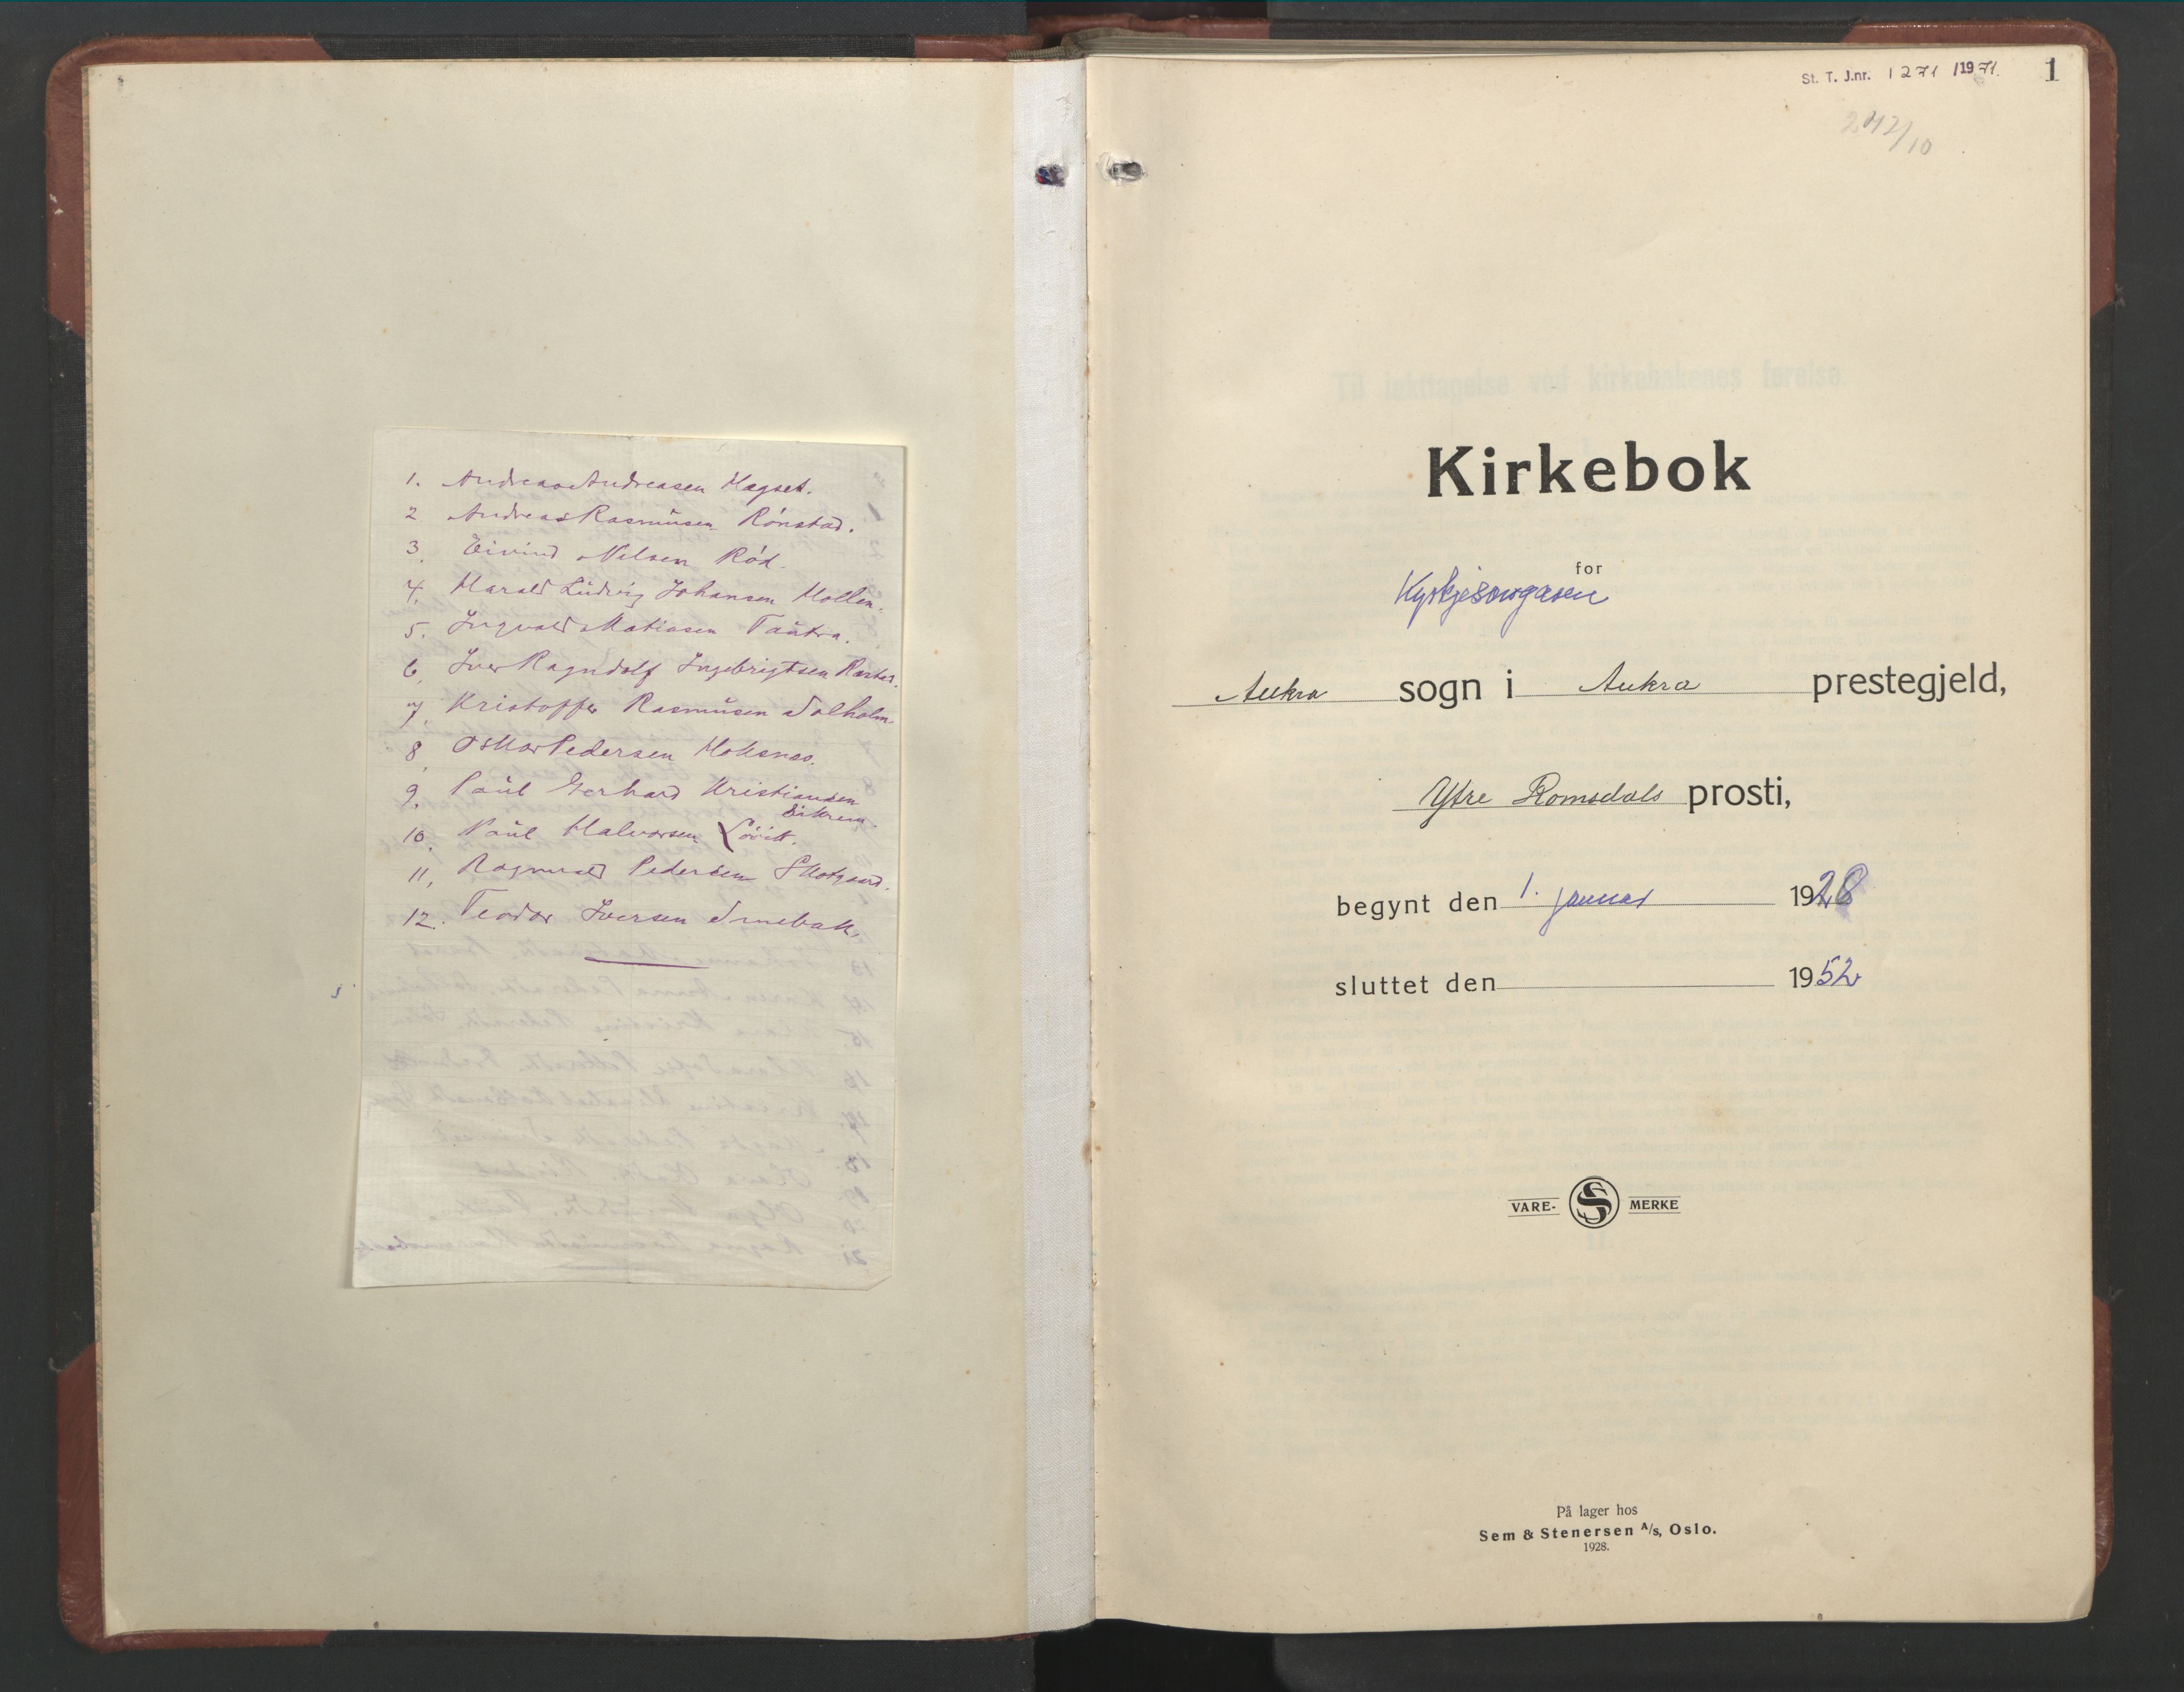 1. Andreas Andreasen Hagset.
2 Andreas Rasmusen Rónstad.
3. Eivind Nilsen Ród.
4. Harald Ludvig Johansen Hollen.
5. Ingvald Matiasen Tautra.
6. Iver Ragndolf Ingebrigtsen
7. Kristoffer Rasmusen Solholm
8. Oskar Pedersen Hoksnes.
9. Paul Gerhard Kristiansen
Eikrem.
10. Paul Halvorsen Lóvik.
11, Ragnvald Pedersen Skotgaard.
12. Teodor Iversen Smebak.
St. T. J.nr. 1271 /1971.
1
242/10
Kirkebok
for
Kyrkjesongaren
Aukra sogn i Aukra prestegjeld,
Ytre Romsdals prosti,
begynt den 1. januar 1928
sluttet den 1952
VARE- S MERKE
På lager hos
Sem & Stenersen A/s, Oslo.
1928.